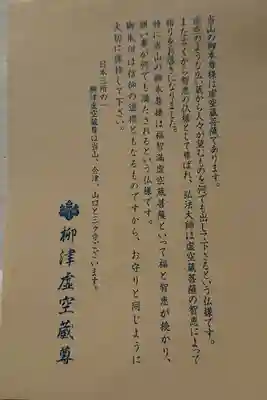 当山の御本尊様は虚空蔵菩薩であります。
虚空のような広い蔵から人々が望むものを何でも出して下さるという仏様です。
また古くから智恵の仏様として尊ばれ、弘法大師は虚空蔵菩薩の智恵によって
悟りをお開きになりました。
特に当山の御本尊様は福智満虚空蔵菩薩といって福と智恵が授かり、
願い事が何でも満たされるという仏様です。
御朱印は信仰の道標ともなるものですから、お守りと同じように
大切に護持して下さい。
日本三所の一
柳津虚空蔵尊は当山、会津、山口と三ヶ寺ございます。
柳津虚空蔵尊